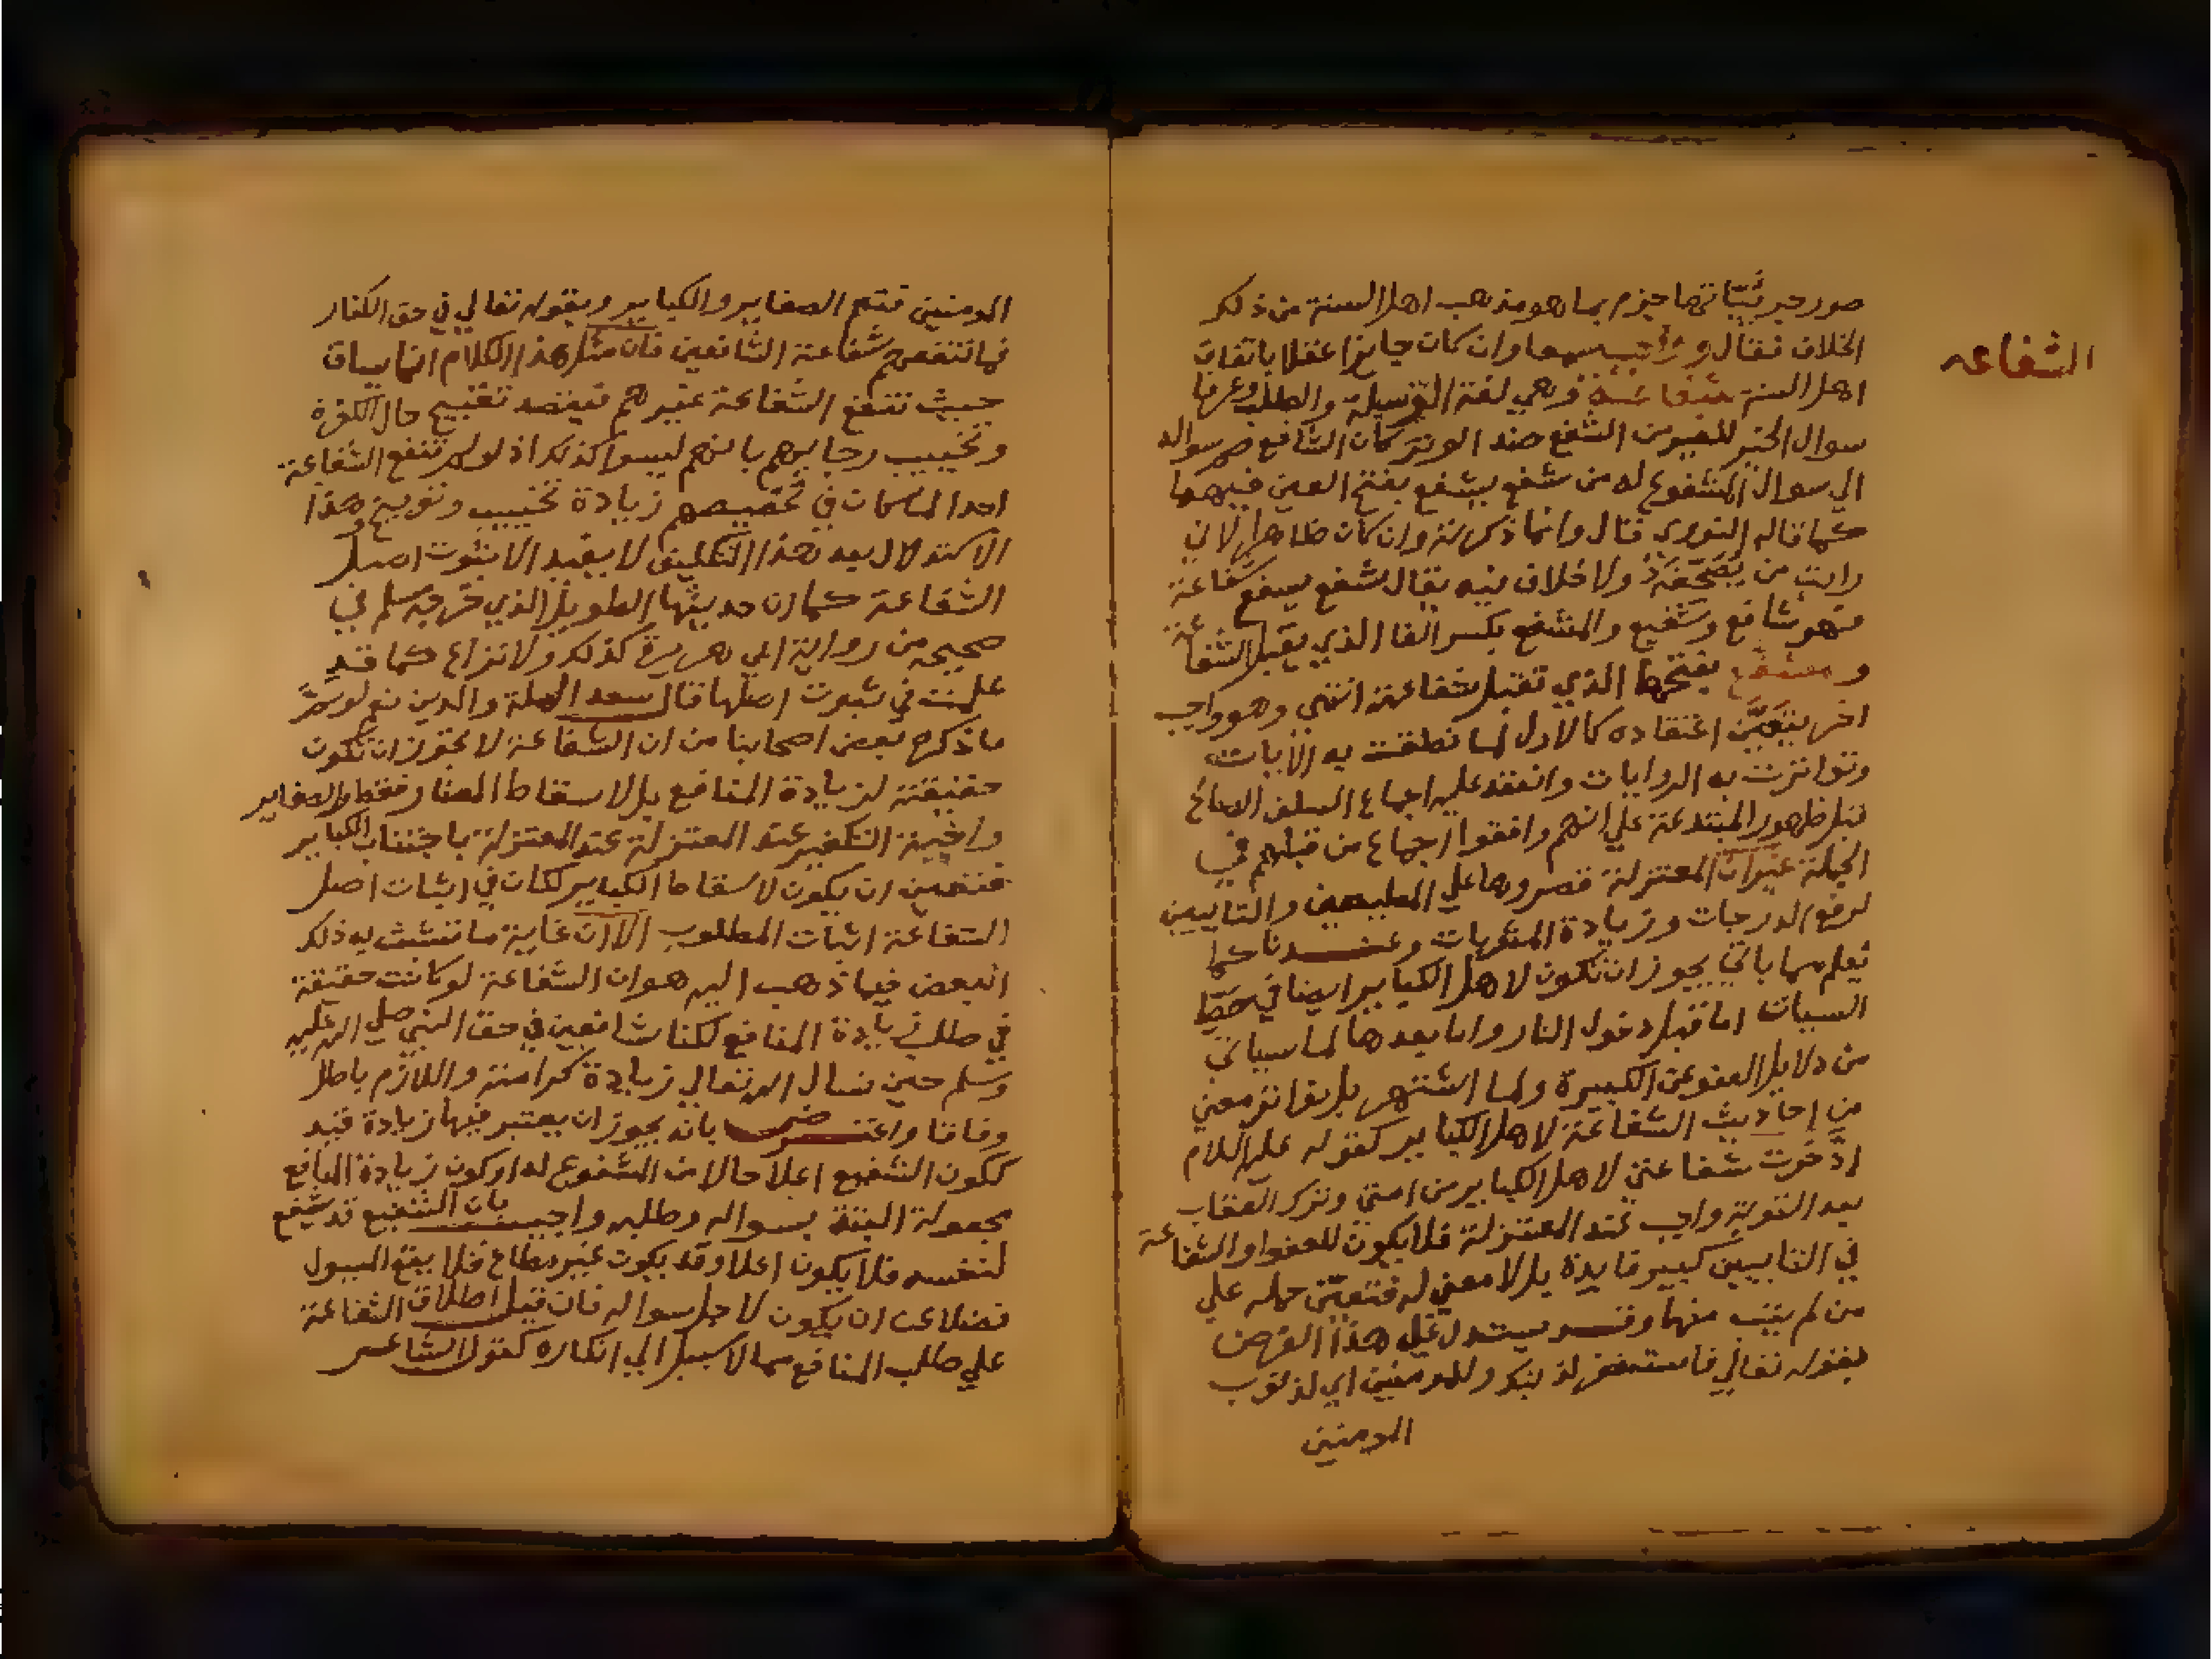 الشفاعه
صور جريتياتها جزم بما هو مذهب اهل السنة من ذلك
الخلاف فقال وواجب سمعا وان كان جايزا عقلا باتفاق
اهل السنة شفاعته وهي لغة الوسيلة والطلب وعرفا
سوال الخير للغير من الشفع ضد الوتر كان الشافع ضم سواله
الي سوال المشفوع له من شفع يشفع بفتح العين فيهما
كما قاله النووي قال وانما ذكرته وان كان ظاهرا لاني
رايت من يصحفه ولا خلاف فيه يقال شفع يشفع شفاعة
فهو شافع وشفيع والمشفع بكسر الفا الذي يقبل الشفاعة
و مشفع بفتحها الذي تقبل شفاعته انتهي وهو واجب
اخر يتعين اعتقاده كالاول لما نطقت به الايات
وتواترت به الروايات وانعقد عليه اجماع السلف الصالح
قبل ظهور المبتدعة علي انهم وافقوا اجماع من قبلهم في
الجملة غير ان المعتزلة قصروها علي المطيعين والتايبين
لرفع الدرجات وزيادة المثوبات وعندنا كما
تعلم مما ياتي يجوز ان تكون لاهل الكباير ايضا في حط
السيات اما قبل دخول النار واما بعدها لما سياتي
من دلايل العفو عن الكبيرة ولما اشتهر بل تواتر معني
من احاديث الشفاعة لاهل الكباير كقوله عليه السلام
ادخرت شفاعتي لاهل الكباير من امتي وترك العقاب
بعد التوبة واجب عند المعتزلة فلا يكون للعفو او الشفاعة
في التايبين كبير فايدة بل لا معني له فتعين حمله علي
من لم يتب منها وقد يستدل علي هذا الغرض
بقوله تعالي فاستغفر لذنبك وللمومنين اي لذنوب
المومنين
المومنين فتعم الصغاير والكباير وبقوله تعالي في حق الكفار
فما تنفعهم شفاعة الشافعين فان مثل هذا الكلام انما يساق
حيث تنفع الشفاعة غيرهم فيقصد تقبيح حال الكفرة
وتخييب رجايهم بانهم ليسوا كذلك اذ لو لم تنفع الشفاعة
احدا لما كان في تخصيصهم زيادة تخييب وتوبيخ وهذا
الاستدلال بعد هذا التكليف لا يفيد الا ثبوت اصل
الشفاعة كما ان حديثها الطويل الذي خرجه مسلم في
صحيحه من رواية ابي هريرة كذلك ولا نزاع كما قد
علمت في ثبوت اصلها قال سعد الملة والدين نعم لو تم
ما ذكره بعض اصحابنا من ان الشفاعة لا يجوز ان تكون
حقيقة لزيادة المنافع بل لاسقاط المضار فقط والصغاير
واجبة التكفير عند المعتزلة عند المعتزلة باجتناب الكباير
فتعين ان يكون لاسقاط الكباير لكان في اثبات اصل
الشفاعة اثبات المطلوب الا ان غاية ما تشبث به ذلك
البعض فيما ذهب اليه هو ان الشفاعة لو كانت حقيقة
في طلب زيادة المنافع لكنا شافعين في حق النبي صلي الله عليه
وسلم حين نسال الله تعالي زيادة كرامته واللازم باطل
وفاقا واعترض بانه يجوز ان يعتبر فيها زيادة قيد
ككون الشفيع اعلا حالا من المشفوع له او كون زيادة المنافع
محصولة البتة بسواله وطلبه واجيب بان الشفيع قد يشفع
لنفسه فلا يكون اعلا وقد يكون غير مطاع فلا يقع المسول
فضلا عن ان يكون لاجل سواله فان قيل اطلاق الشفاعة
علي طلب المنافع مما لا سبيل الي انكاره كقول الشاعر